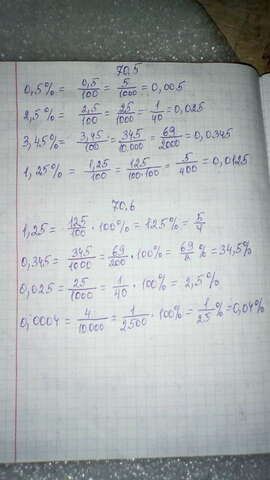 70.5
0,5% = 0,5/100 = 5/1000 = 0,005
2,5% = 2,5/100 = 25/1000 = 1/40 = 0,025
3,45% = 3,45/100 = 345/10.000 = 69/2000 = 0,0345
1,25% = 1,25/100 = 125/100·100 = 5/400 = 0,0125
70.6
1,25 = 125/100 · 100% = 125% = 5/4
0,345 = 345/1000 = 69/200 · 100% = 69/2 % = 34,5%
0,025 = 25/1000 = 1/40 · 100% = 2,5%
0,0004 = 4/10.000 = 1/2500 · 100% = 1/25 % = 0,04%